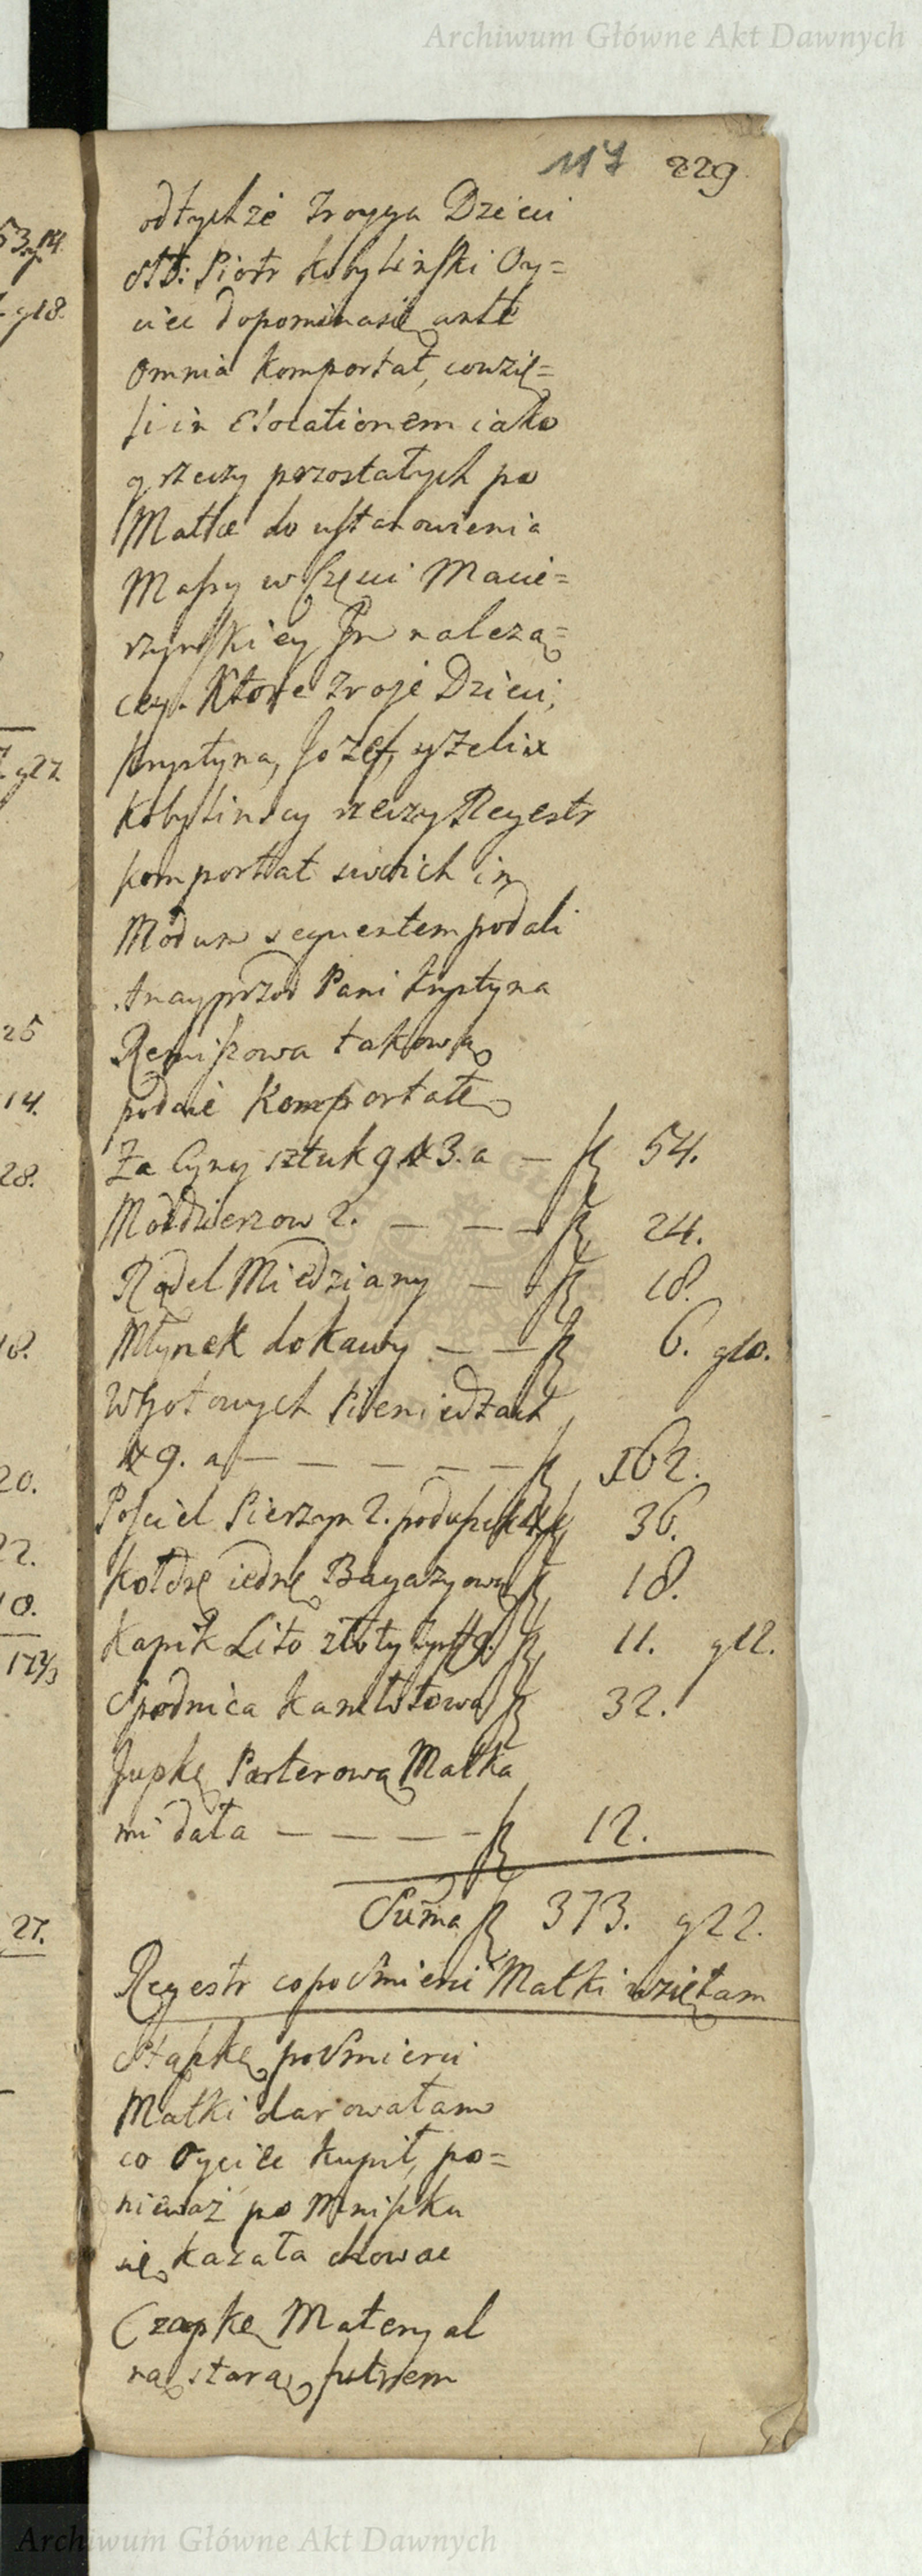 Archiwum Główne Akt Dawnych
117 229
od tychże Troyga Dzieci
Piotr Kobyliński Oy=
ciec dopomina się ante
omnia Komportat, co wzię=
li in Elocationem iako
y rzeczy pozostałych po
Matce do ustanowienia
Massy w Częsci Macie=
rzynskiey należą=
cey. Ktore Troje Dzieci,
Krystyna, Jozef, y Felix
Kobylinscy rzeczy Regestr
komportat swoich in
Modum sequentem podali
A nayprzod Pani Krystyna
Remiszowa takową
podaie Komportatę
Za Cyny sztuk 9 # 3. a — f 54.
Mozdzierzow 2. — — — f 24.
Rądel Miedziany — — f 18.
Młynek do kawy — — f 6. g 10.
W gotowych Pieniedzach
# 9. a — — — — — f 162.
Posciel Pierzyn 2. poduszek 4 f 36.
Kołdrę iednę Bagazyową f 18.
Kapik Lito złoty f 11. g 12.
Spodnica kamlotowa f 32.
Jupkę Parterową Matka
mi dała — — — — f 12.
Suma f 373. g 22.
Regestr co po Smierci Matki wziełam
po Smierci
Matki darowałam
co Oyciec kupił, po=
nieważ po Mnisku
się kazała chować
Czapkę Materyal
ną starą futrem
53 g 14.
g 18.
g 27
25
14.
28.
18.
20.
22.
18.
17 2/3
27.
Archiwum Główne Akt Dawnych